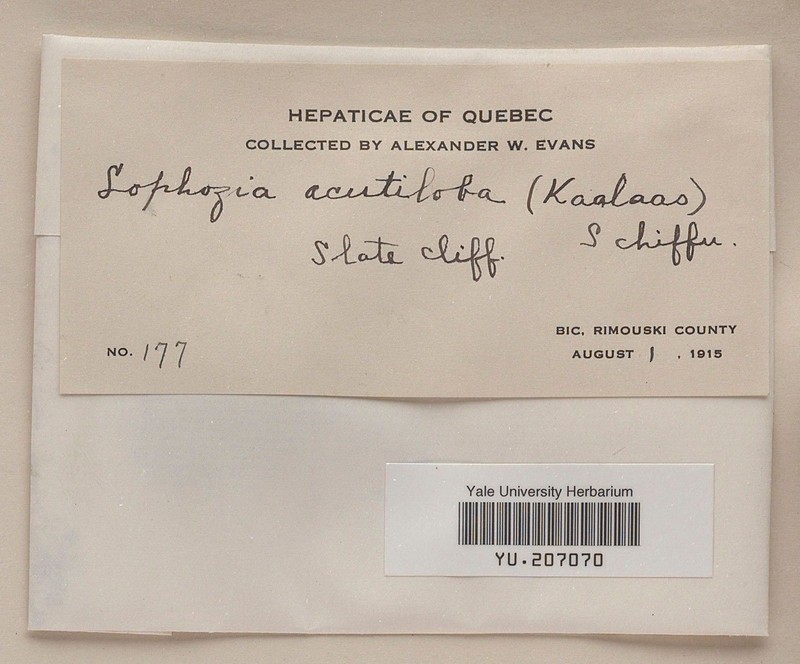 HEPATICAE OF QUEBEC
COLLECTED BY ALEXANDER W. EVANS
Lophozia acutiloba (Kaalaas)
Slate cliff. Schiffn.
BIC, RIMOUSKI COUNTY
NO. 177 AUGUST 1 , 1915
Yale University Herbarium
YU.207070